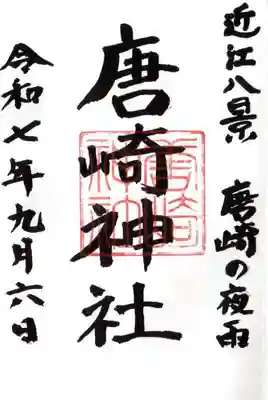 近江八景 唐崎の夜雨
唐崎神社
令和七年九月六日